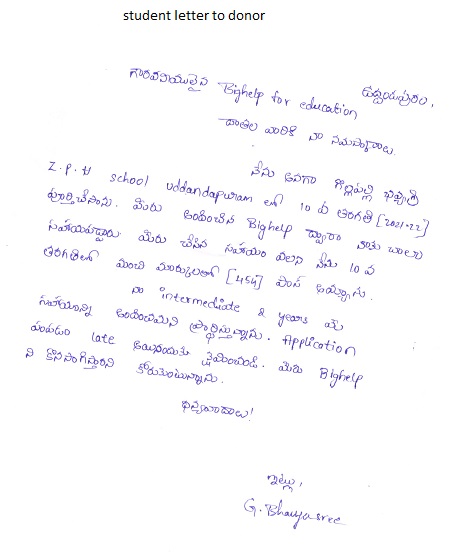 student letter to donor
ఉద్దండపురం,
గౌరవనీయులైన Bighelp for education
దాతల వారికి నా నమస్కారాలు.
నేను అనగా గొల్లపల్లి భవ్యశ్రీ
Z.P.H school uddandapuram లో 10 వ తరగతి [2021-22]
పూర్తిచేసాను. మీరు అందించిన Bighelp ద్వారా నాకు చాలా
సహాయపడ్డారు. మీరు చేసిన సహాయం వలన నేను 10 వ
తరగతిలో మంచి మార్కులతో [454] పాస్ అయ్యాను.
నా intermediate 2 years కు
సహాయాన్ని అందించమని ప్రార్థిస్తున్నాను. Application
పంపడం late అయినందుకు క్షమించండి. మీరు Bighelp
ని కొనసాగిస్తారని కోరుకుంటున్నాను.
ధన్యవాదాలు!
ఇట్లు,
G. Bhavyasree